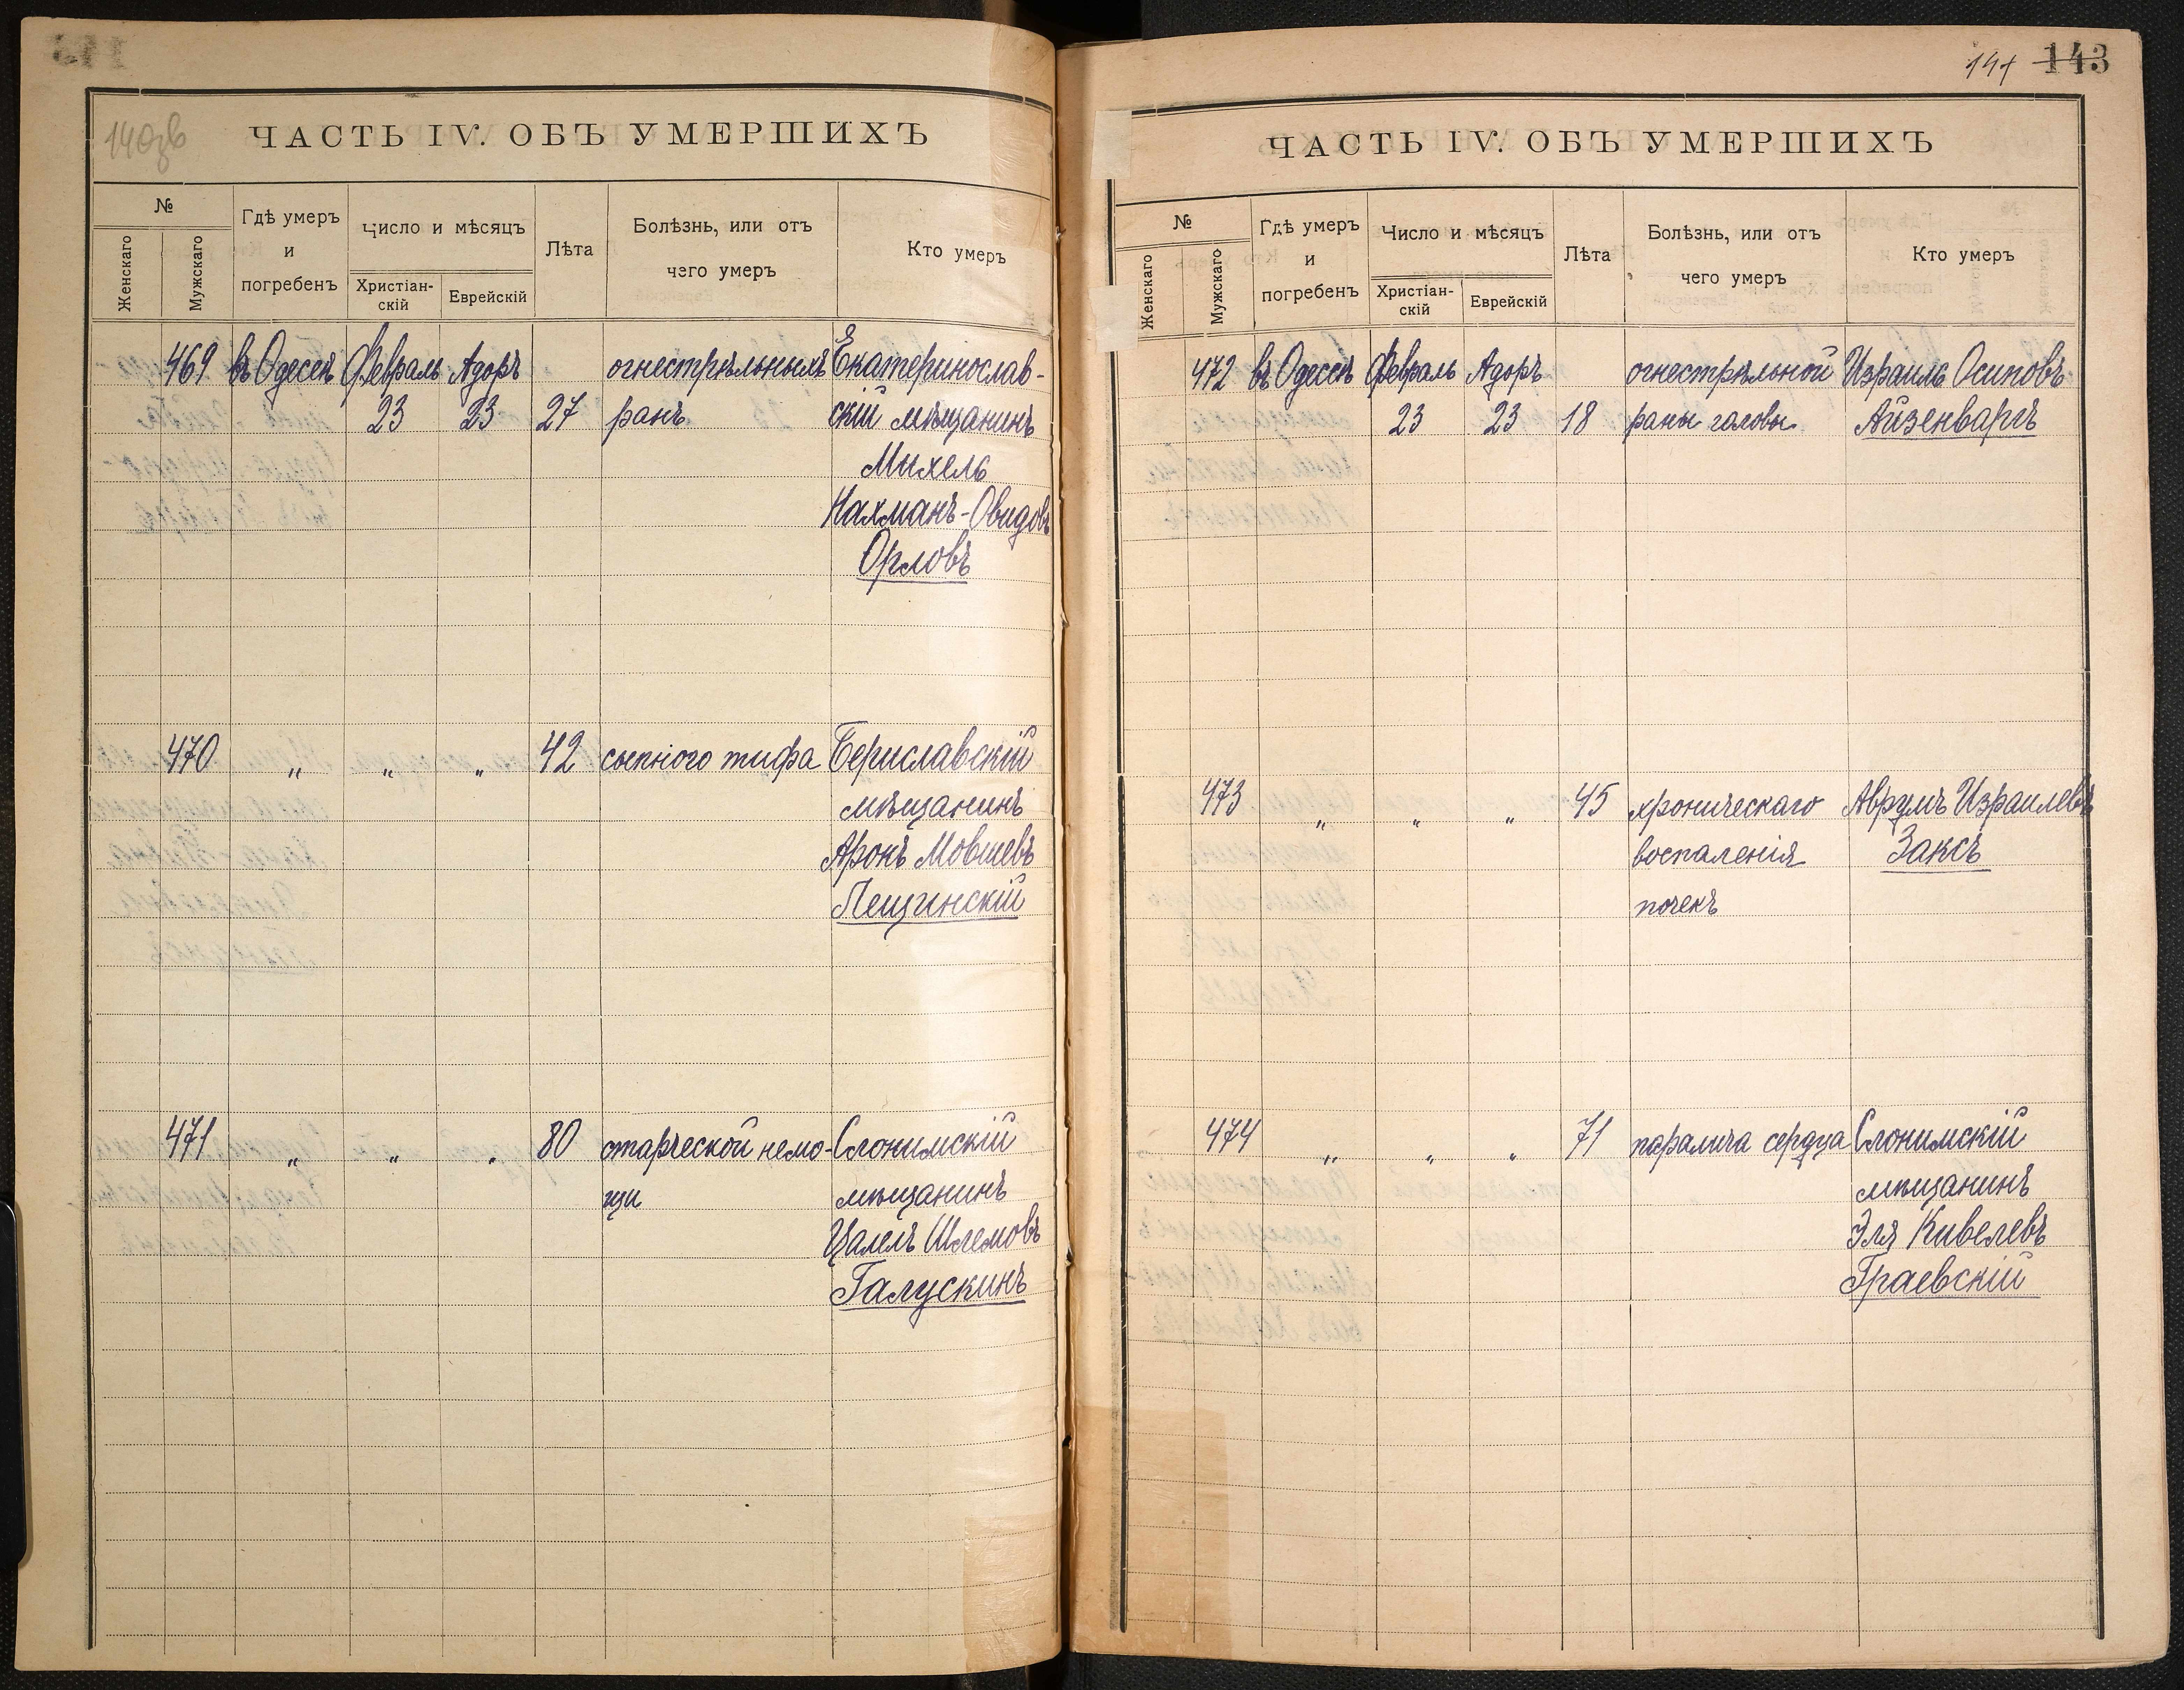 140зв
ЧАСТЬ IV. ОБЪ УМЕРШИХЪ
№
Женскаго
Мужскаго
Гдѣ умеръ
и
погребенъ
Число и мѣсяцъ
Христіан-
скій
Еврейскій
Лѣта
Болѣзнь, или отъ
чего умеръ
Кто умеръ
469 въ Одессѣ Февраль Адоръ огнестрѣльныхъ Екатеринослав-
23 23 27 ранъ скій мѣщанинъ
Михель
Нахманъ-Овидовъ
Орловъ
470 „ „ „ 42 сыпного тифа Бериславскій
мѣщанинъ
Аронъ Мовшевъ
Лещинскій
471 „ „ „ 80 старческой немо- Слонимскій
щи мѣщанинъ
Цалель Шлемовъ
Галускинъ
141 143
ЧАСТЬ IV. ОБЪ УМЕРШИХЪ
№
Женскаго
Мужскаго
Гдѣ умеръ
и
погребенъ
Число и мѣсяцъ
Христіан-
скій
Еврейскій
Лѣта
Болѣзнь, или отъ
чего умеръ
Кто умеръ
472 въ Одессѣ Февраль Адоръ огнестрѣльной Израиль Осиповъ
23 23 18 раны головы Айзенваргъ
473 „ „ „ 45 хроническаго Аврумъ Израилевъ
воспаленія Заксъ
почекъ
474 „ „ „ 71 паралича сердца Слонимскій
мѣщанинъ
Эля Кивелевъ
Граевскій